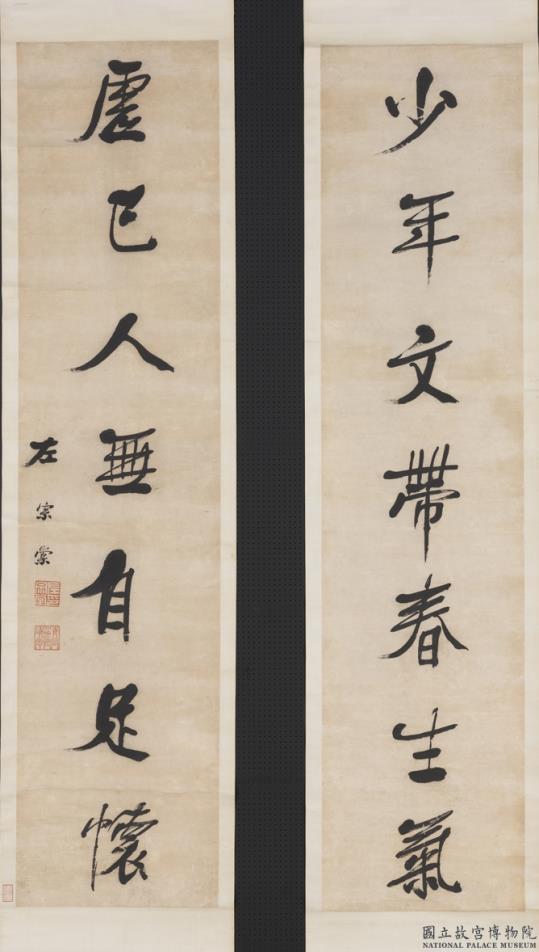 少年文帶春生氣
虛已人無自足懷
左宗棠
國立故宮博物院
NATIONAL PALACE MUSEUM